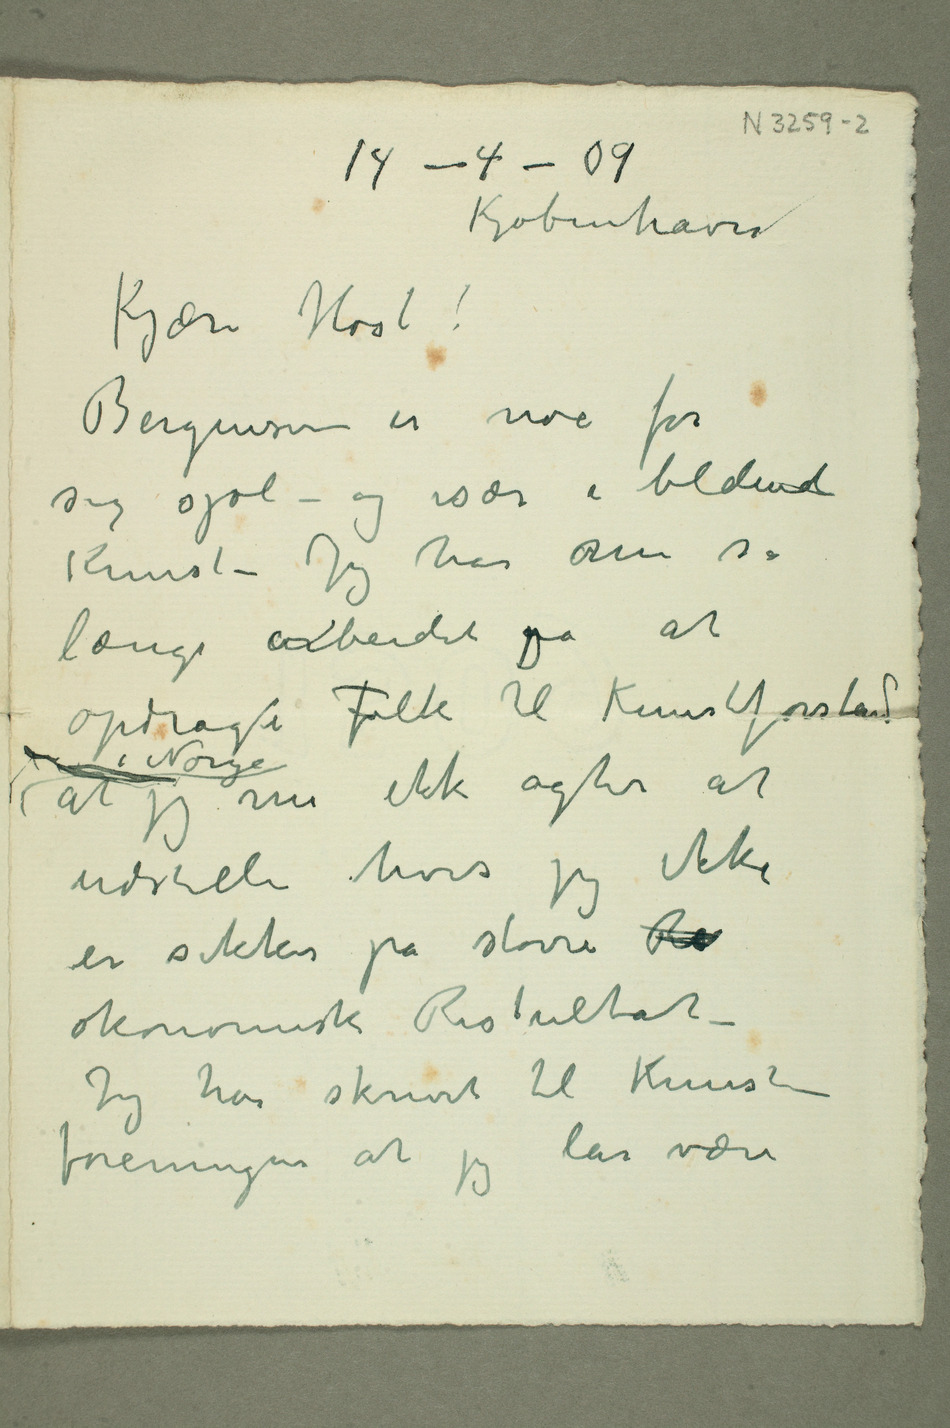 N 3259-2
14 – 4 – 09
Kjøbenhavn
Kjære Høst!
Bergensere er noe for
sig sjøl – og især i bldend
Kunst – Jeg har nu så
længe arbeidet på at
opdrage Folk til Kunstforstand
i Norge
(at jeg nu ikke agter at
udstille hvis jeg ikke
er sikker på større
økonomisk Resultat –
Jeg har skrivet til Kunst
foreningen at jeg lar være